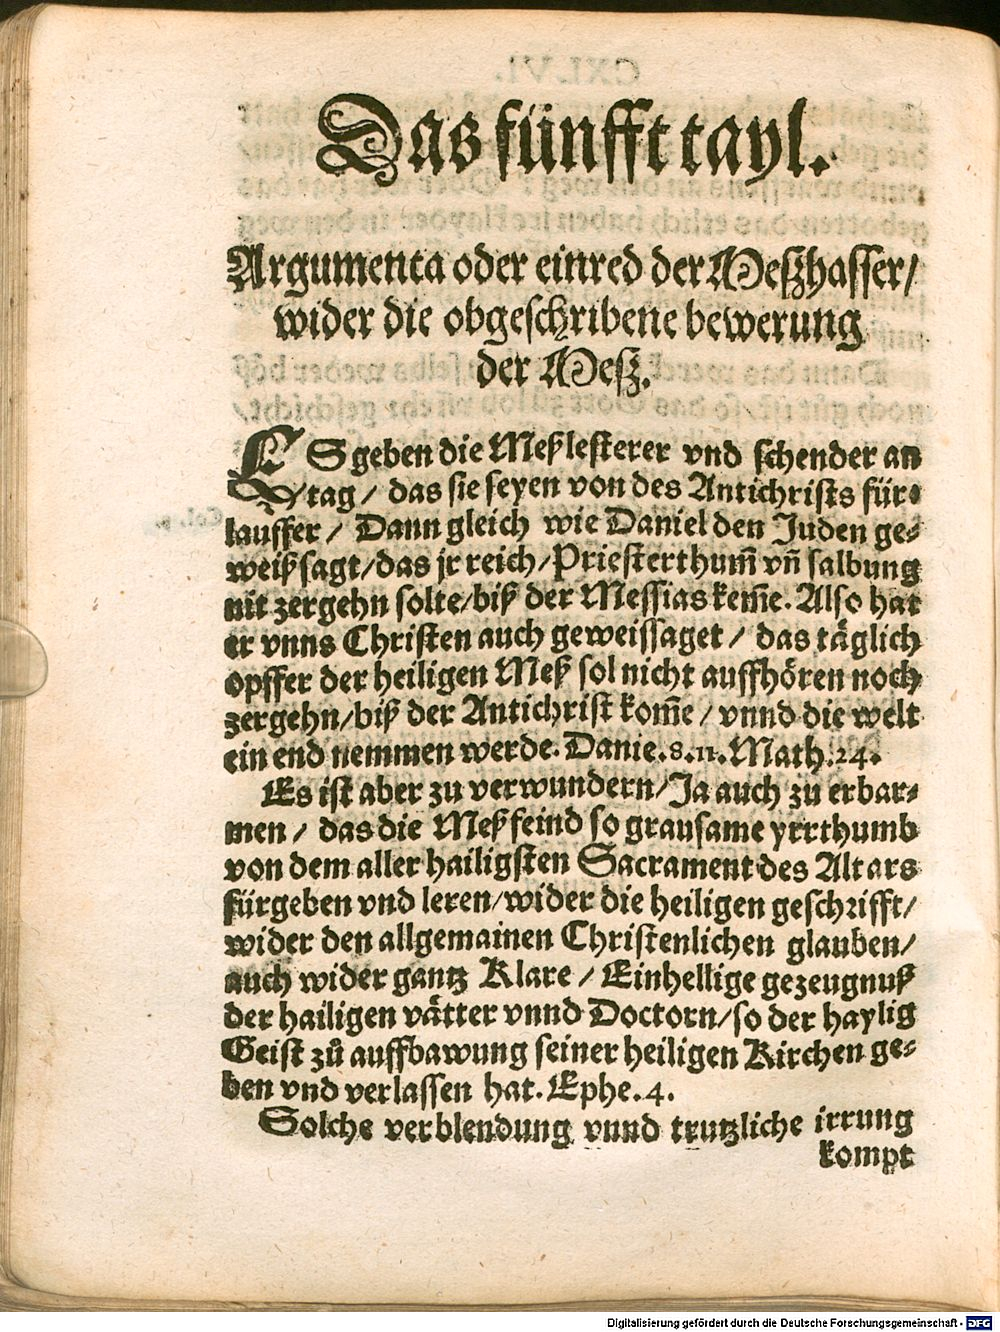 Das fünfft tayl.
Argumenta oder einred der Meßhasser/
wider die obgeschribene bewerung
der Meß.
ES geben die Meßlesterer vnd schender an
tag / das sie seyen von des Antichrists für⸗
lauffer / Dann gleich wie Daniel den Juden ge⸗
weißsagt/das jr reich/Priesterthum̄ vn̄ salbung
nit zergehn solte/biß der Messias kem̄e. Also hat
er vnns Christen auch geweissaget / das täglich
opffer der heiligen Meß sol nicht auffhören noch
zergehn/biß der Antichrist kom̄e / vnnd die welt
ein end nemmen werde. Danie.8.11.Math.24.
Es ist aber zu verwundern/Ja auch zu erbar⸗
men / das die Meßfeind so grausame yrrthumb
von dem aller hailigsten Sacrament des Altars
fürgeben vnd leren/wider die heiligen geschrifft/
wider den allgemainen Christenlichen glauben/
auch wider gantz Klare / Einhellige gezeugnuß
der hailigen vätter vnnd Doctorn/so der haylig
Geist zů auffbawung seiner heiligen Kirchen ge⸗
ben vnd verlassen hat. Ephe.4.
Solche verblendung vnnd trutzliche irrung
kompt
Digitalisierung gefördert durch die Deutsche Forschungsgemeinschaft - DFG